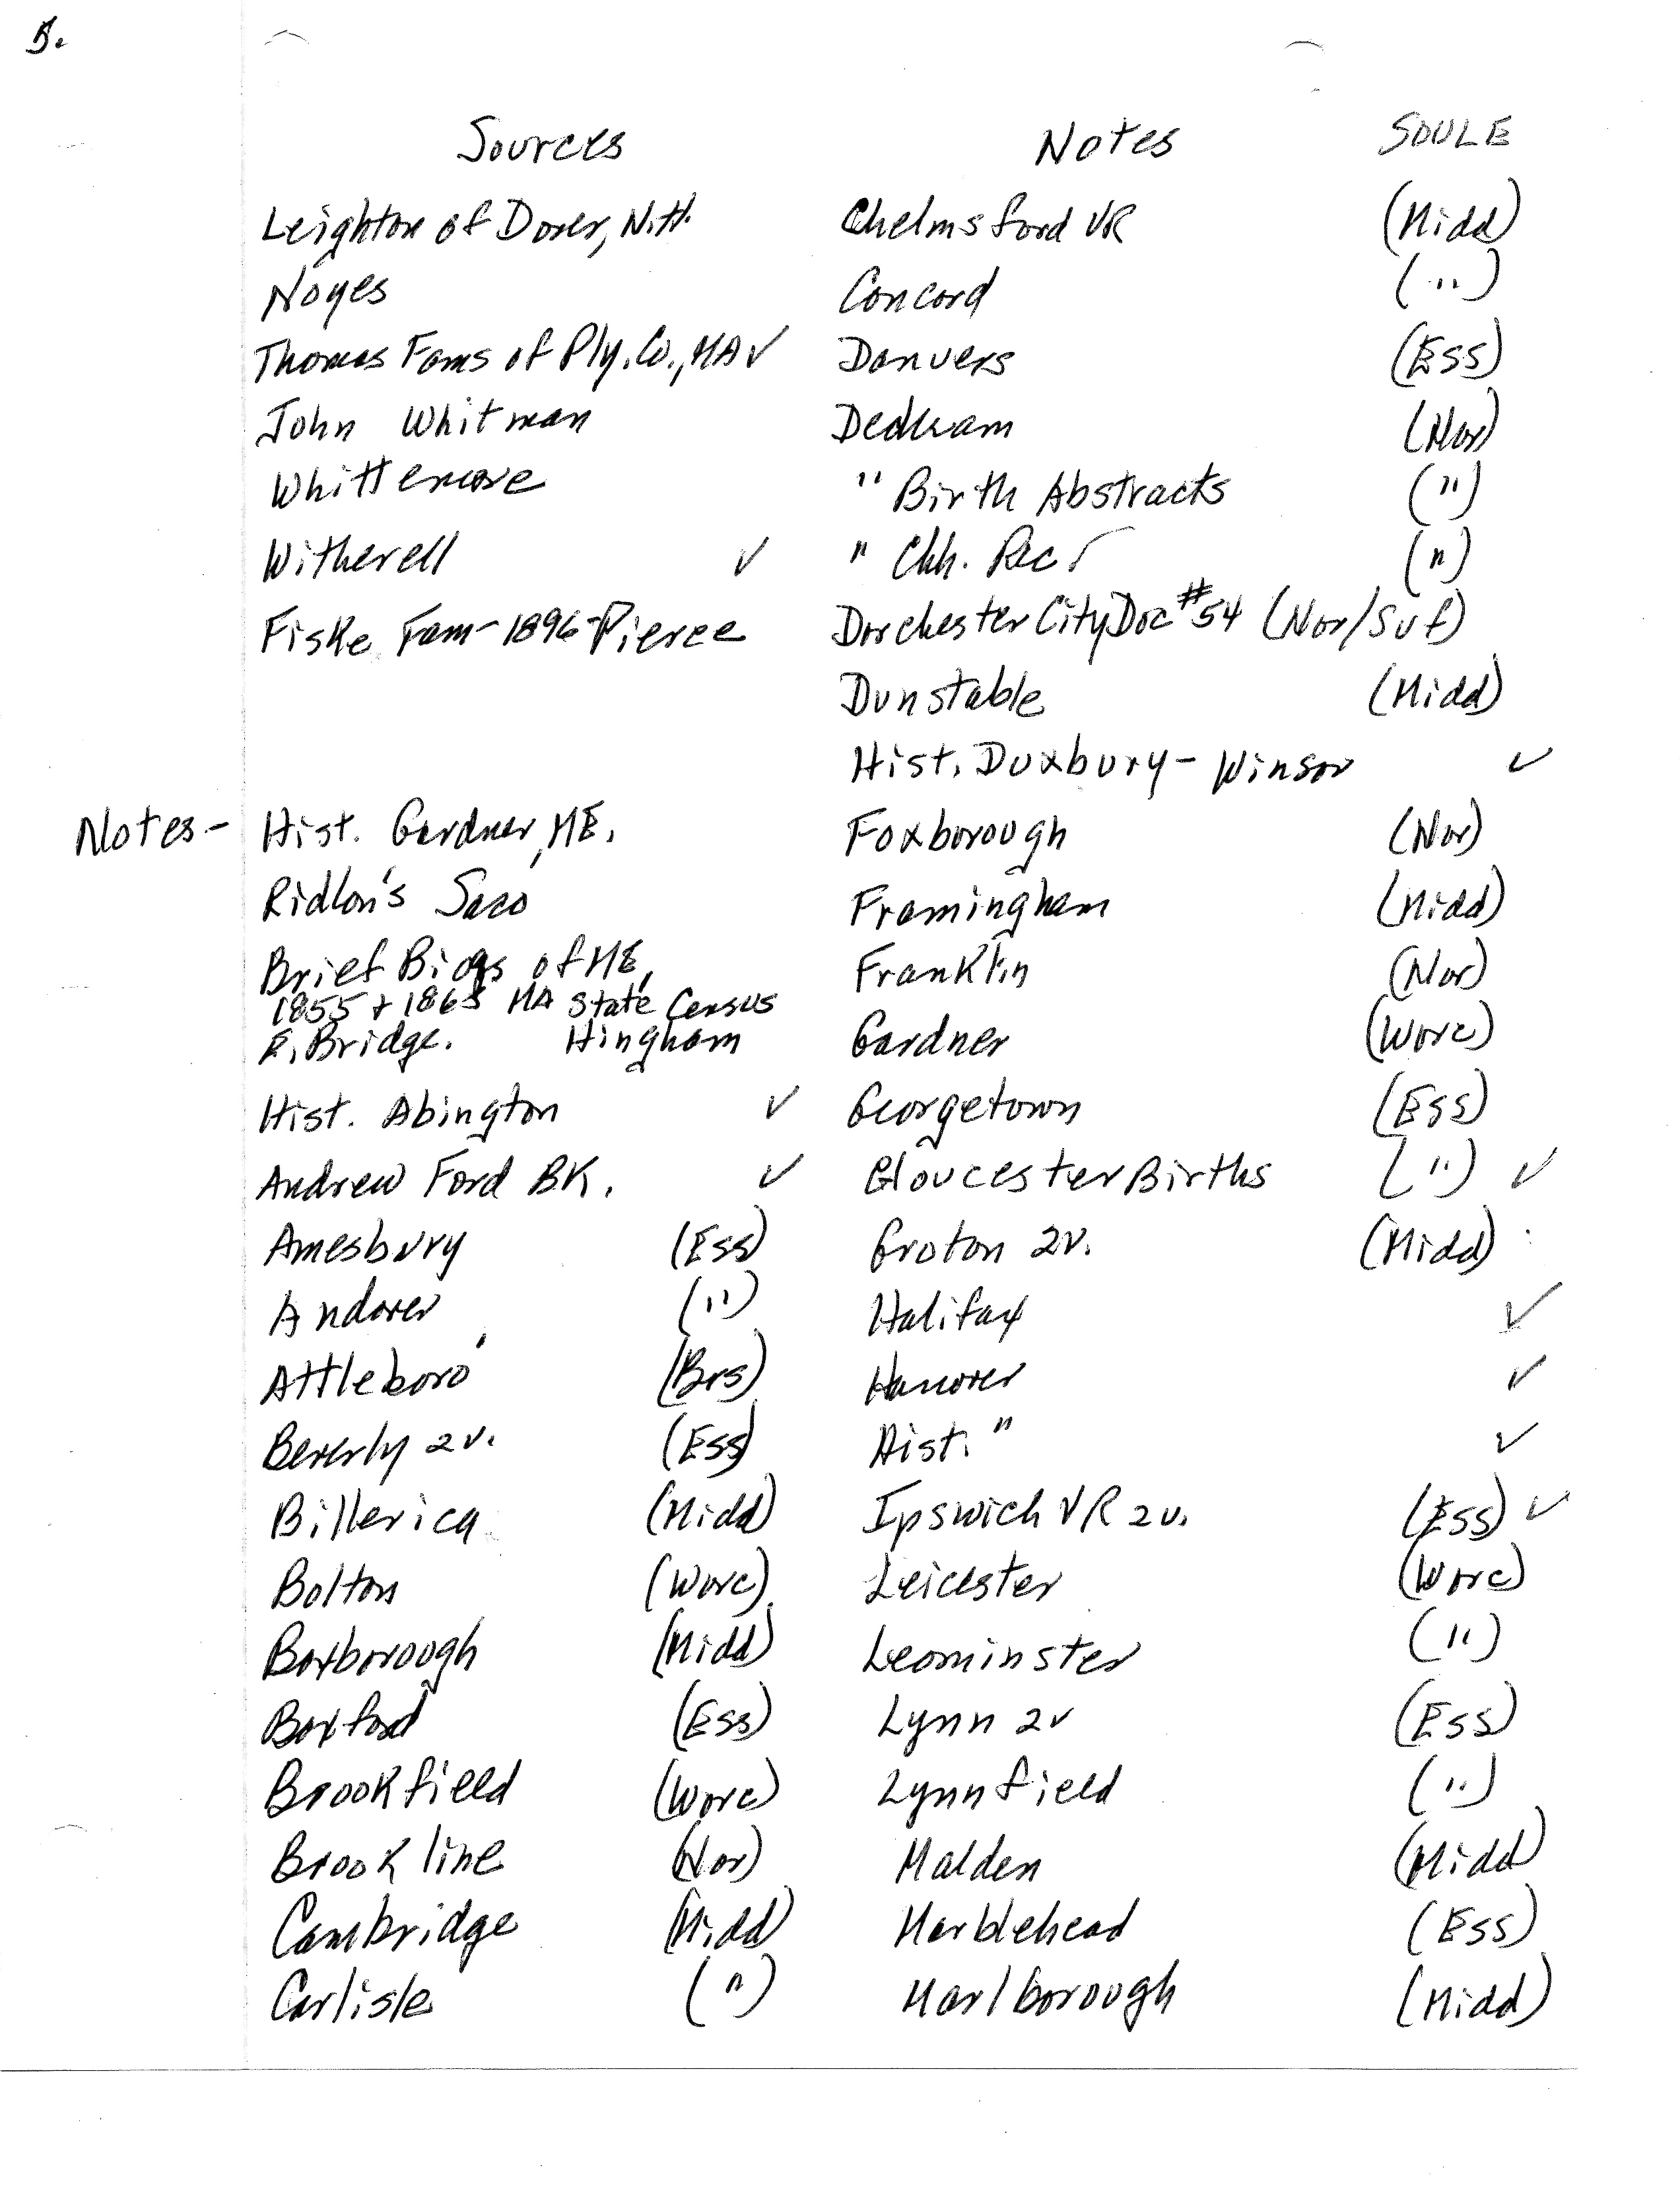 5.
Sources Notes SOULE
Leighton of Dover, N.H. Chelmsford VR (Midd)
Noyes Concord (")
Thomas Fams of Ply. Co., MA ✓ Danvers (Ess)
John Whitman Dedham (Nor)
Whittemore " Birth Abstracts (")
Witherell ✓ " Chh. Rec ✓ (")
Fiske Fam - 1896 - Pierce Dorchester City Doc #54 (Nor/Suf)
Dunstable (Midd)
Hist. Duxbury - Winsor ✓
Notes - Hist. Gardner, ME. Foxborough (Nor)
Ridlon's Saco Framingham (Midd)
Brief Biogs of ME, Franklin (Nor)
1855 + 1865 MA State Census
E. Bridge. Hingham Gardner (Worc)
Hist. Abington ✓ Georgetown (Ess)
Andrew Ford BK. ✓ Gloucester Births (") ✓
Amesbury (Ess) Groton 2v. (Midd)
Andover (") Halifax ✓
Attleboro' (Brs) Hanover ✓
Beverly 2v. (Ess) Hist. " ✓
Billerica (Midd) Ipswich VR 2v. (Ess) ✓
Bolton (Worc) Leicester (Worc)
Boxborough (Midd) Leominster (")
Boxford (Ess) Lynn 2v (Ess)
Brookfield (Worc) Lynnfield (")
Brookline (Nor) Malden (Midd)
Cambridge (Midd) Marblehead (Ess)
Carlisle (") Marlborough (Midd)